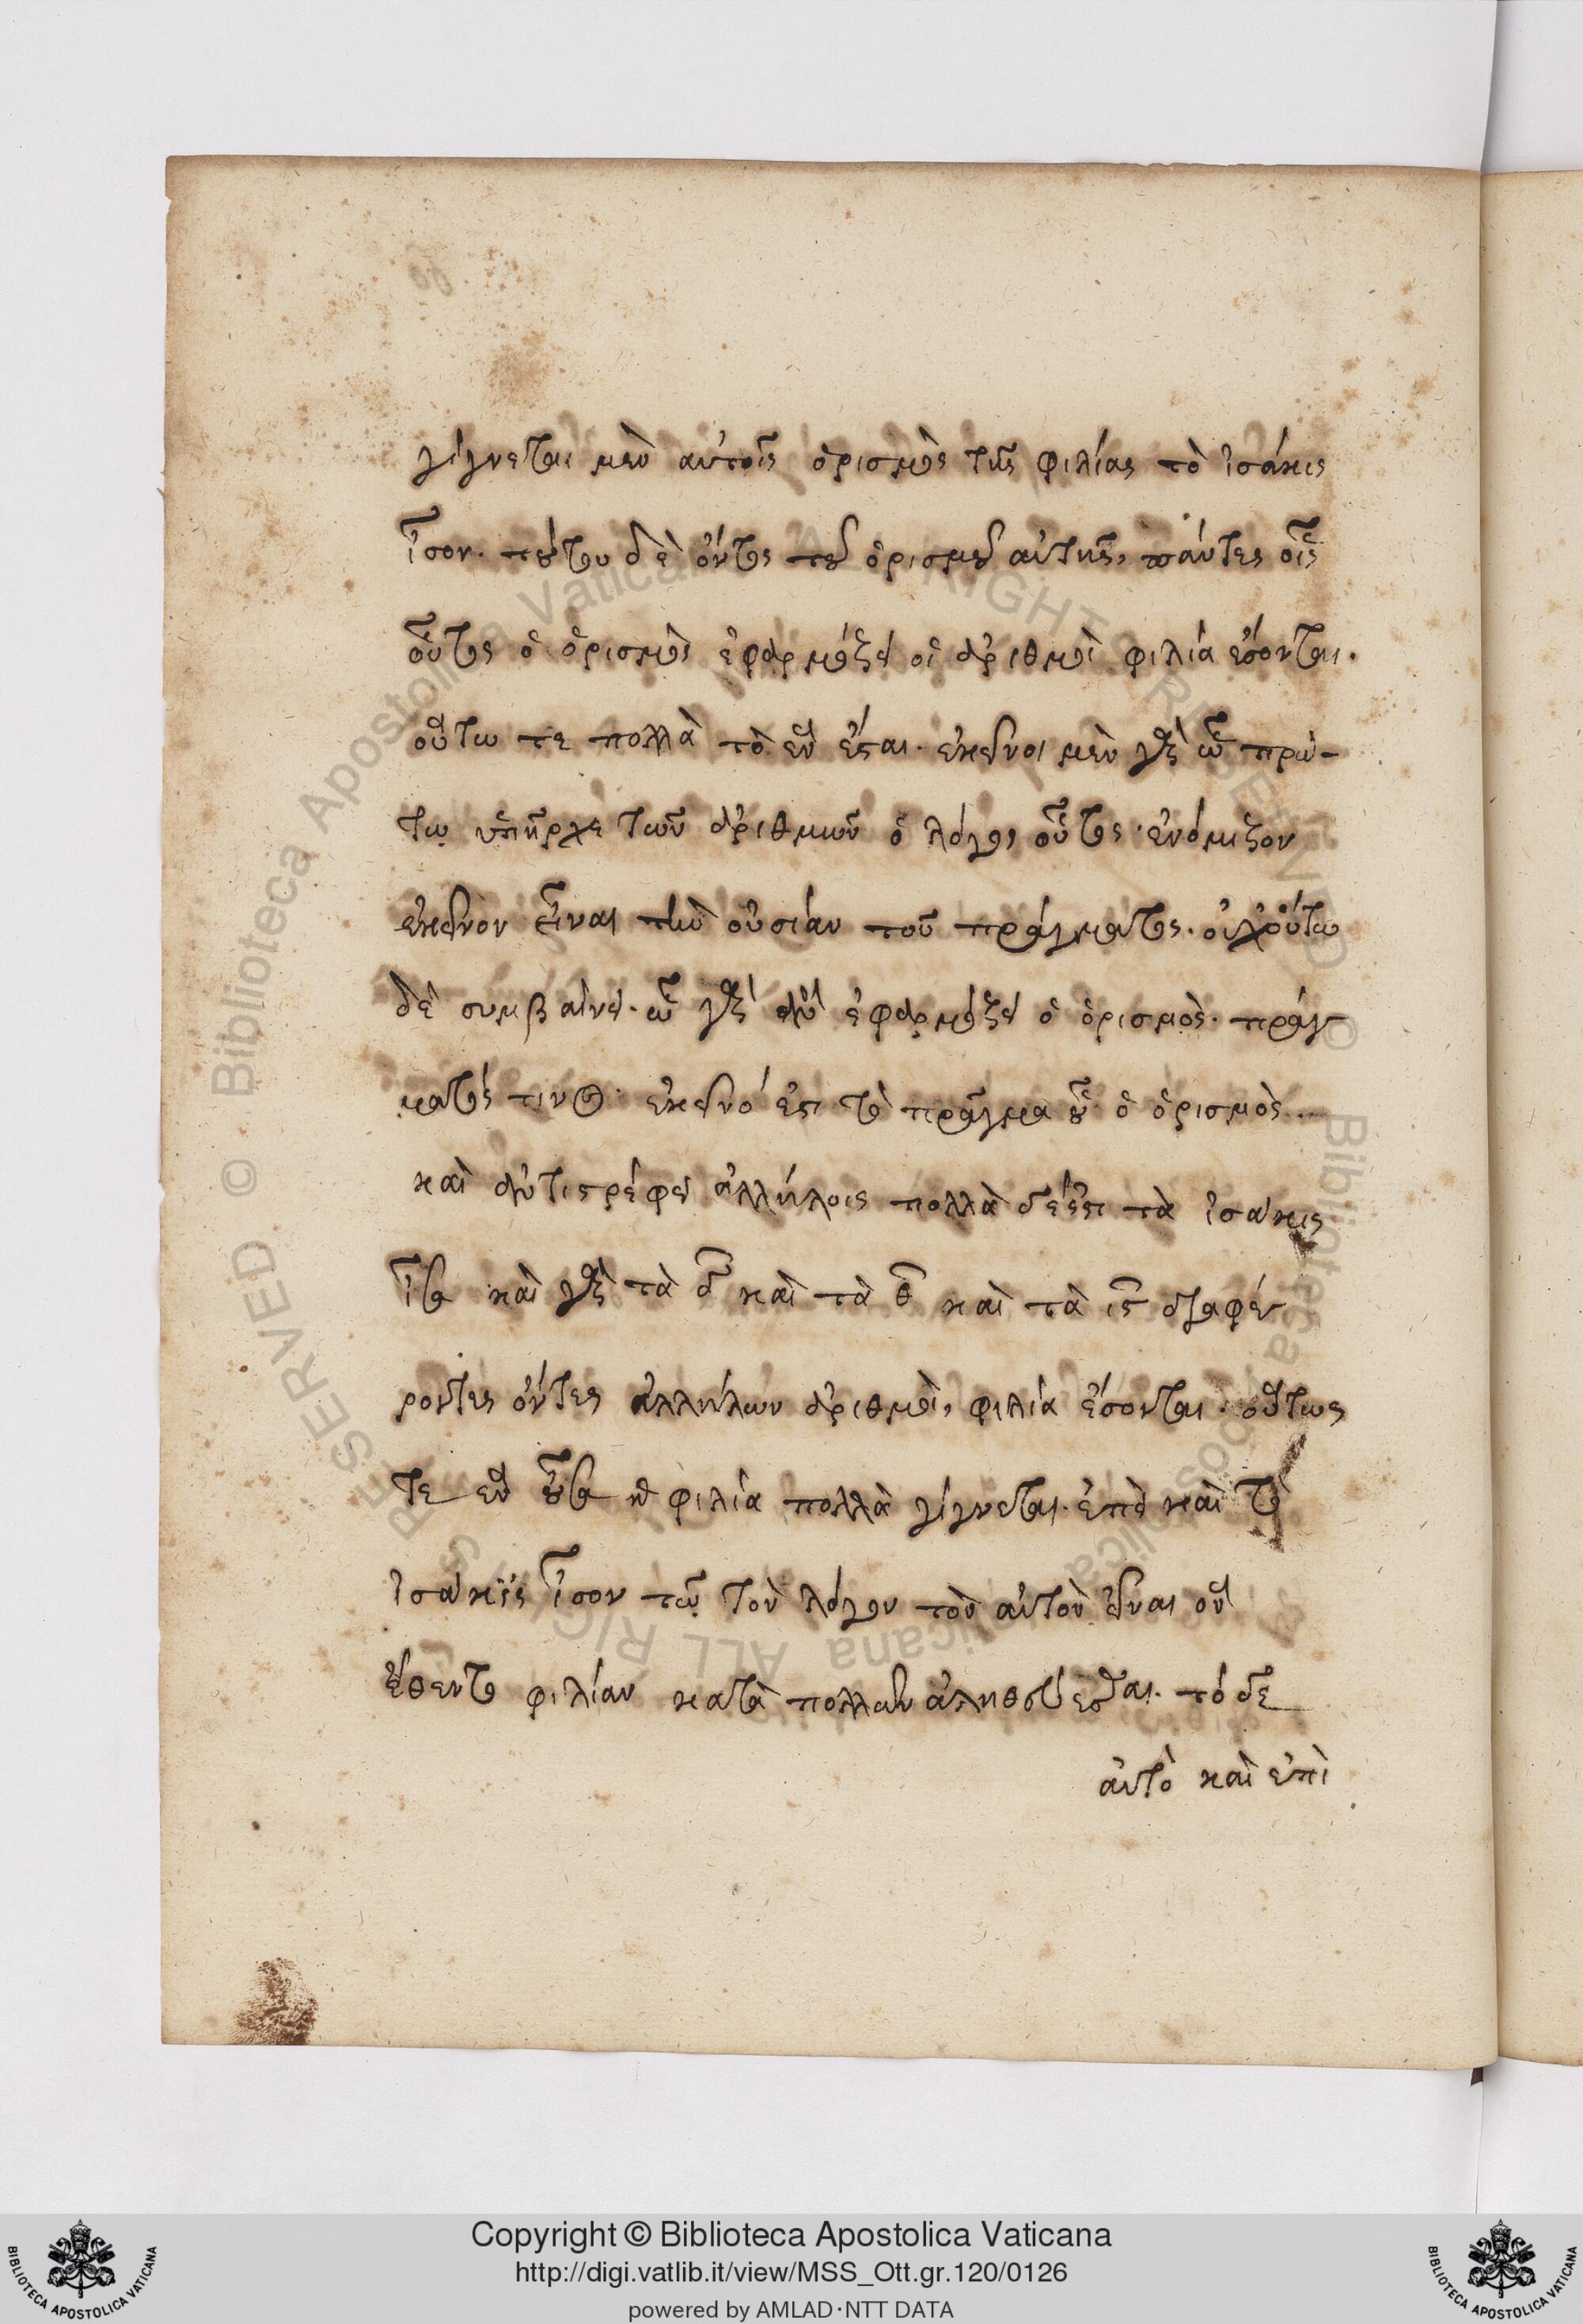 γίγνεται μὲν αὐτοῖς ὁρισμὸς τῆς φιλίας τὸ ἰσάκις
ἴσον. τούτου δὲ ὄντος τοῦ ὁρισμοῦ αὐτῆς, πάντες οἷς
οὗτος ὁ ὁρισμὸς ἐφαρμόζει οἱ ἀριθμοὶ φιλία ἔσονται.
οὕτω τε πολλὰ τὸ ἓν ἔσται. ἐκεῖνοι μὲν γὰρ ᾧ πρώ-
τῳ ὑπῆρχε τῶν ἀριθμῶν ὁ λόγος οὗτος· ἐνόμιζον
ἐκεῖνον εἶναι τὴν οὐσίαν τοῦ πράγματος. οὐχ οὕτω
δὲ συμβαίνει. ᾧ γὰρ ἂν ἐφαρμόζει ὁ ὁρισμὸς. πράγ
ματός τινος· ἐκεῖνό ἐστι τὸ πρᾶγμα οὗ ὁ ὁρισμὸς..
καὶ ἀντιστρέφει ἀλλήλοις πολλὰ δέ ἐστι τὰ ἰσάκις
ἴσα καὶ γὰρ τὰ δ καὶ τὰ θ καὶ τὰ ις διαφέ
ροντες ὄντες ἀλλήλων ἀριθμοὶ, φιλία ἔσονται. οὕτως
τε ἓν οὖσα ἡ φιλία πολλὰ γίγνεται. ἐπεὶ καὶ τὸ
ἰσάκις ἴσον τῷ τὸν λόγον τὸν αὐτὸν εἶναι ὃν
ἔθεντο φιλίαν κατὰ πολλῶν ἀληθεύεσθαι. τὸ δὲ
αὐτὸ καὶ ἐπὶ
Copyright © Biblioteca Apostolica Vaticana
http://digi.vatlib.it/view/MSS_Ott.gr.120/0126
powered by AMLAD·NTT DATA